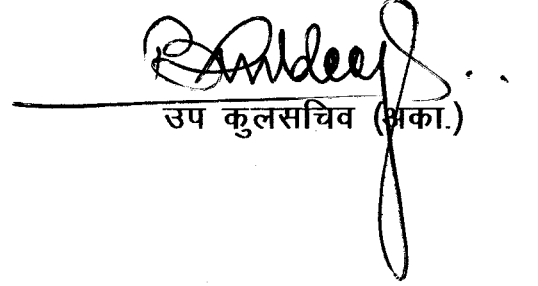 उप कुलसचिव (अका.)